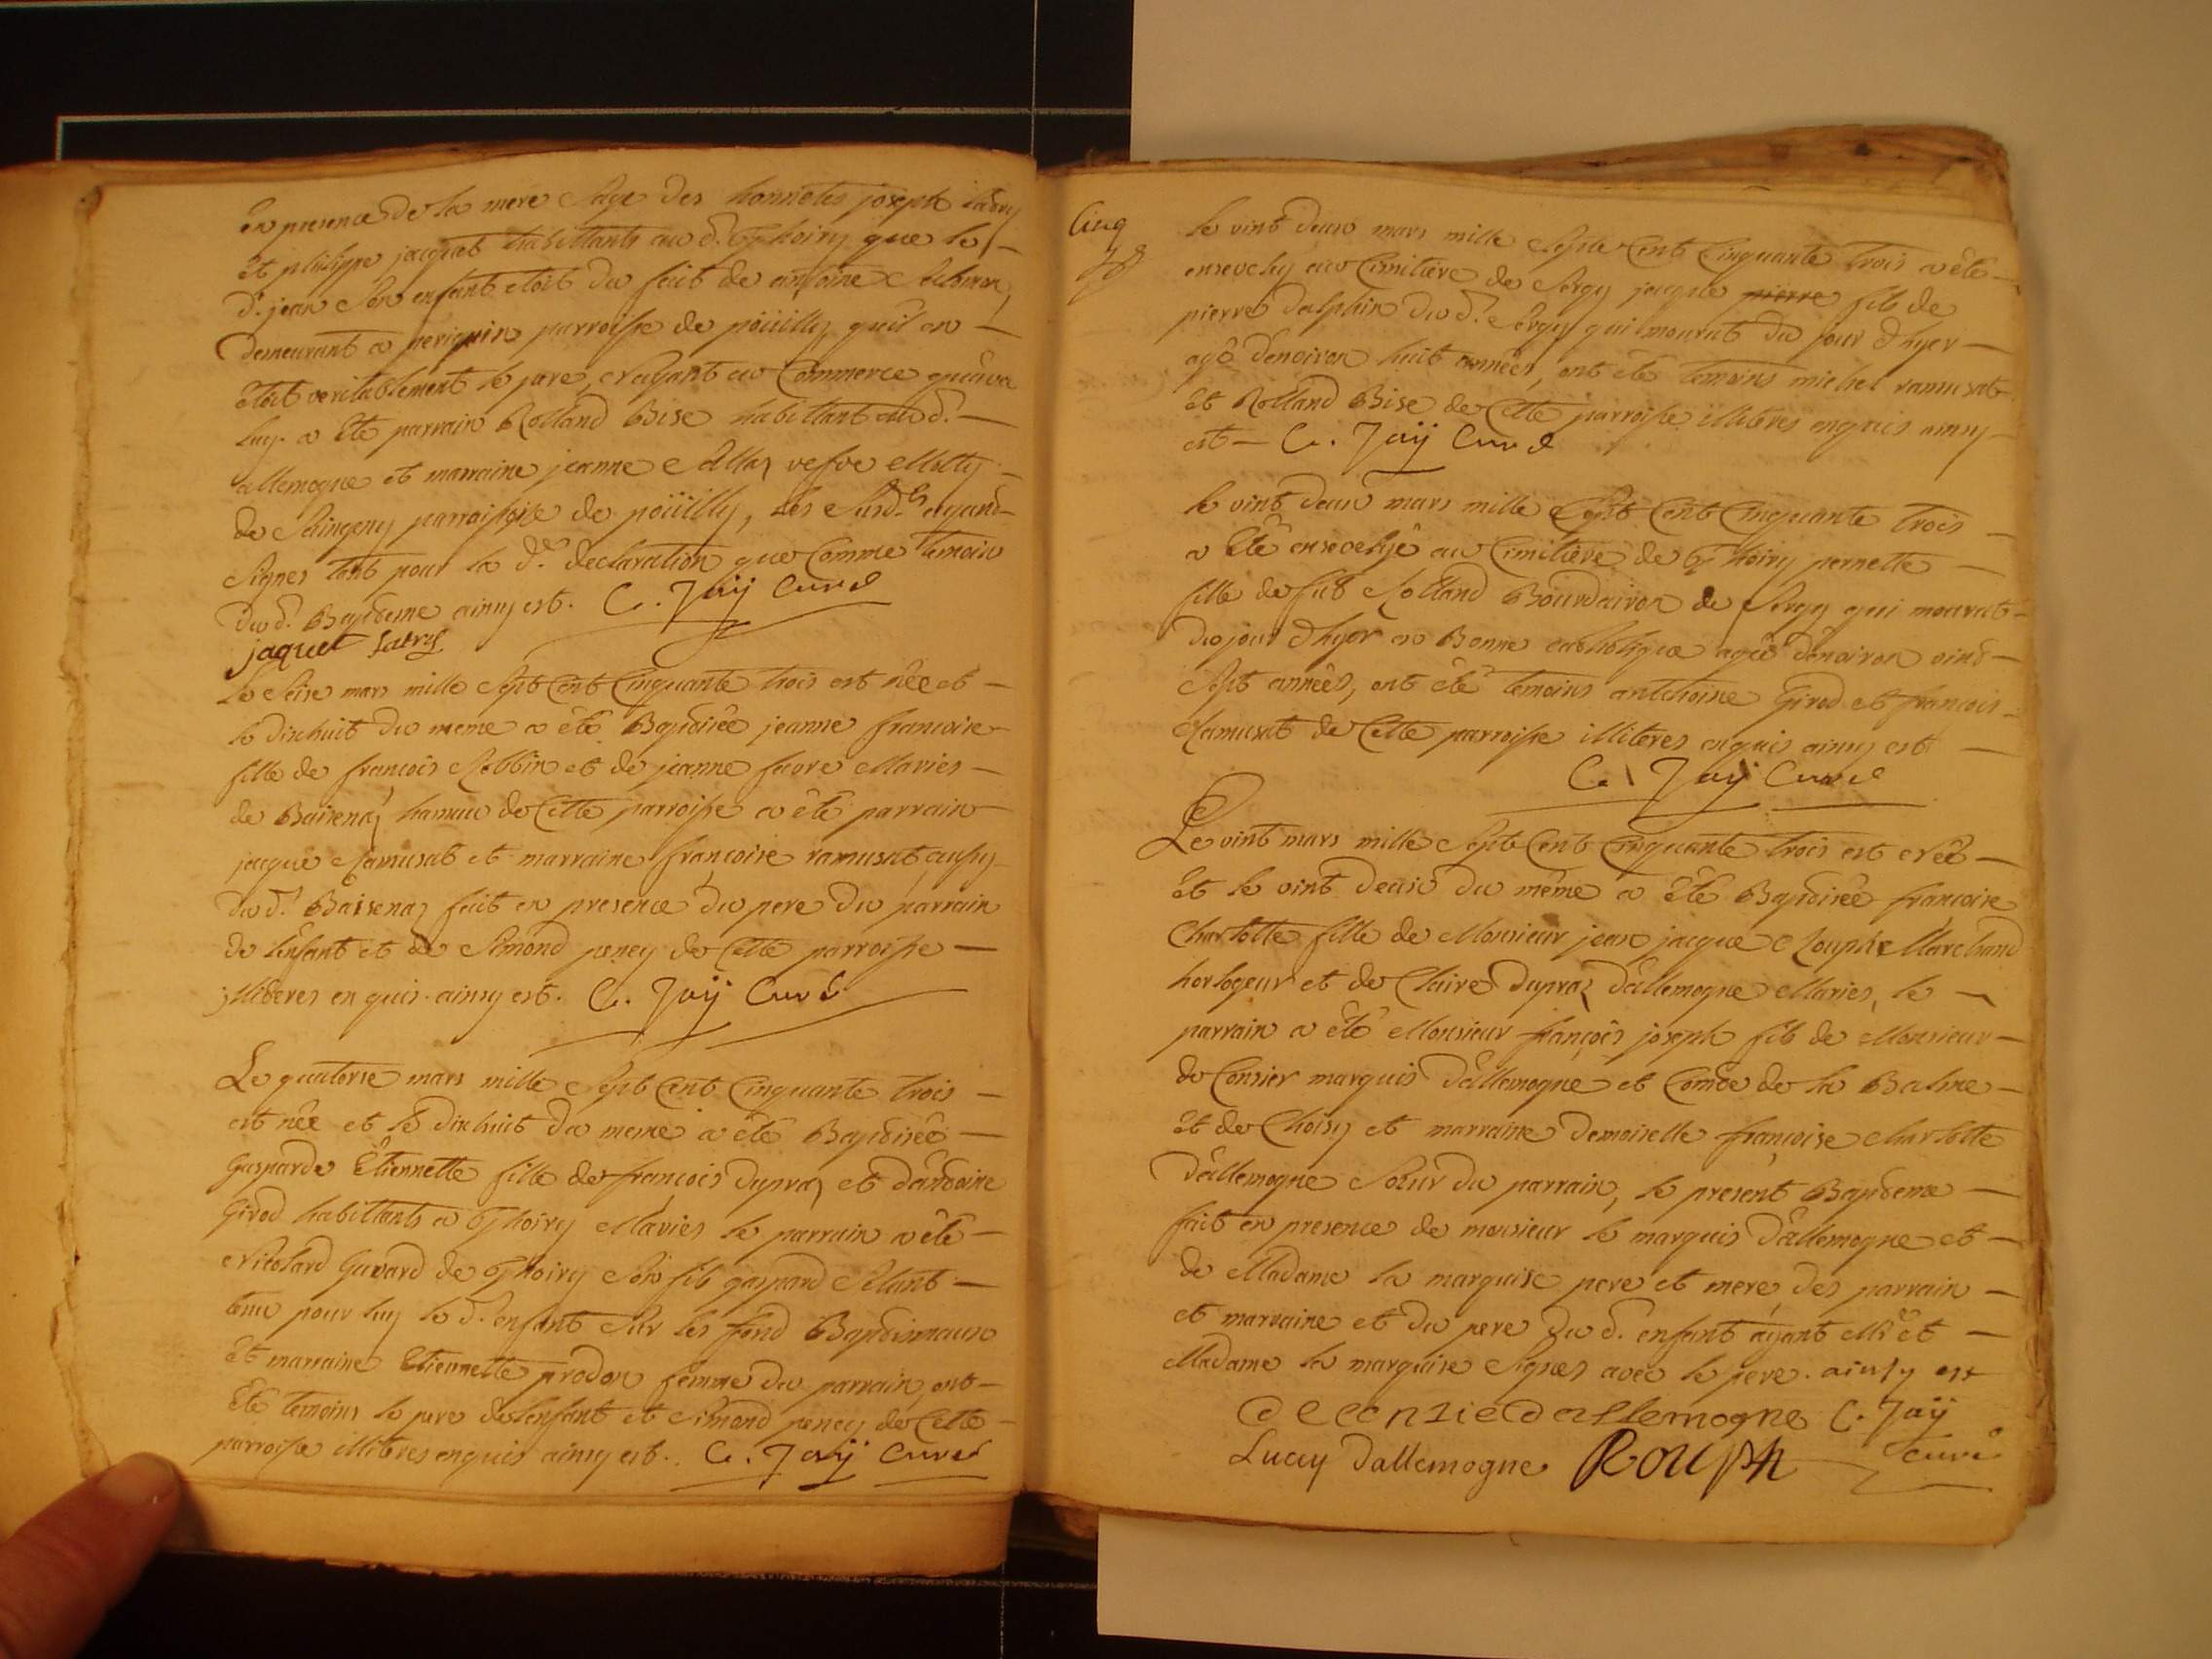 en presence de la mere sage des honnetes joseph
et philippe jacquet habittants au d. Thoiry que le
d. jean son enfant etoit du fait de antoine
demeurant a parroisse de poüilly, quil en
etoit veritablement le pere, ayant eu Commerce
luy. a été parrain Rolland Bise habittant au d.
allemogne et marraine jeanne vefve
de parroisse de poüilly, les susd.
signes tant pour la d. declaration que Comme temoin
du d. Baptême ainsy est. C. Jaÿ Curé
jaquet
Le seise mars mille sept Cent Cinquante trois est née et
le dixhuit du meme a été Baptisée jeanne francoise
fille de francois Robbin et de jeanne favre Maries
de Baisenaz hamau de Cette parroisse a été parrain
jacque Ramusat et marraine françoise ramusat aussy
du d. Baisenaz fait en presence du pere du parrain
de lenfant et de Simond peney de Cette parroisse
illiteres enquis. ainsy est. C. Jaÿ Curé
Le quatorse mars mille sept Cent Cinquante trois
est née et le dixhuit du meme a été Baptisée
Gasparde Etiennette fille de francois dupraz et dantoine
Girod habittants a Thoiry Mariés le parrain a été
Nicolard Guvard de Thoiry son fils gaspard
tenu pour luy le d. enfant sur les fond Baptismaux
et marraine Etiennette prodon femme du parrain, ont
été temoins le pere delenfant et Simond peney de Cette
parroisse illiteres enquis ainsy est. C. Jaÿ Curé
Cinq
Le vint deux mars mille sept Cent Cinquante trois a été
ensevely au Cimitiere de Sergy jacque pierre fils de
pierre dalphin du d. Sergy qui mourut du jour d'hyer
agé denviron huit années, ont été temoins michel ramusat
et Rolland Bise de Cette parroisse illiteres enquis ainsy
est C. Jaÿ Curé
Le vint deux mars mille sept Cent Cinquante trois
a été ensevelye au Cimitiere de Thoiry pernette
fille de fut Rolland Bourdairon de Sergy qui mourut
du jour d'hyer en Bonne catholique agée denviron vint
sept années, ont été temoins antchoine Girod et francois
Ramusat de Cette parroisse illiteres enquis ainsy est
C. Jaÿ Curé
Le vint mars mille sept Cent Cinquante trois est née
et le vint deux du même a été Baptisée francoise
Charlotte fille de Monsieur jean jacque Rouph Marchand
horlogeur et de Claire dupraz dallemogne Maries, le
parrain a été Monsieur françois joseph fils de Monsieur
de Consier marquis dallemogne et Comte de la Balme
et de Choisy et marraine demoiselle françoise charlotte
dallemogne soeur du parrain, le present Baptême
fait en presence de monsieur le marquis dallemogne et
de Madame la marquise pere et mere des parrain
et marraine et du pere du d. enfant ayant et
Madame la marquise signes avec le pere. ainsy est
deConzie dallemogne C. Jaÿ
Lucey dallemogne Rouph curé